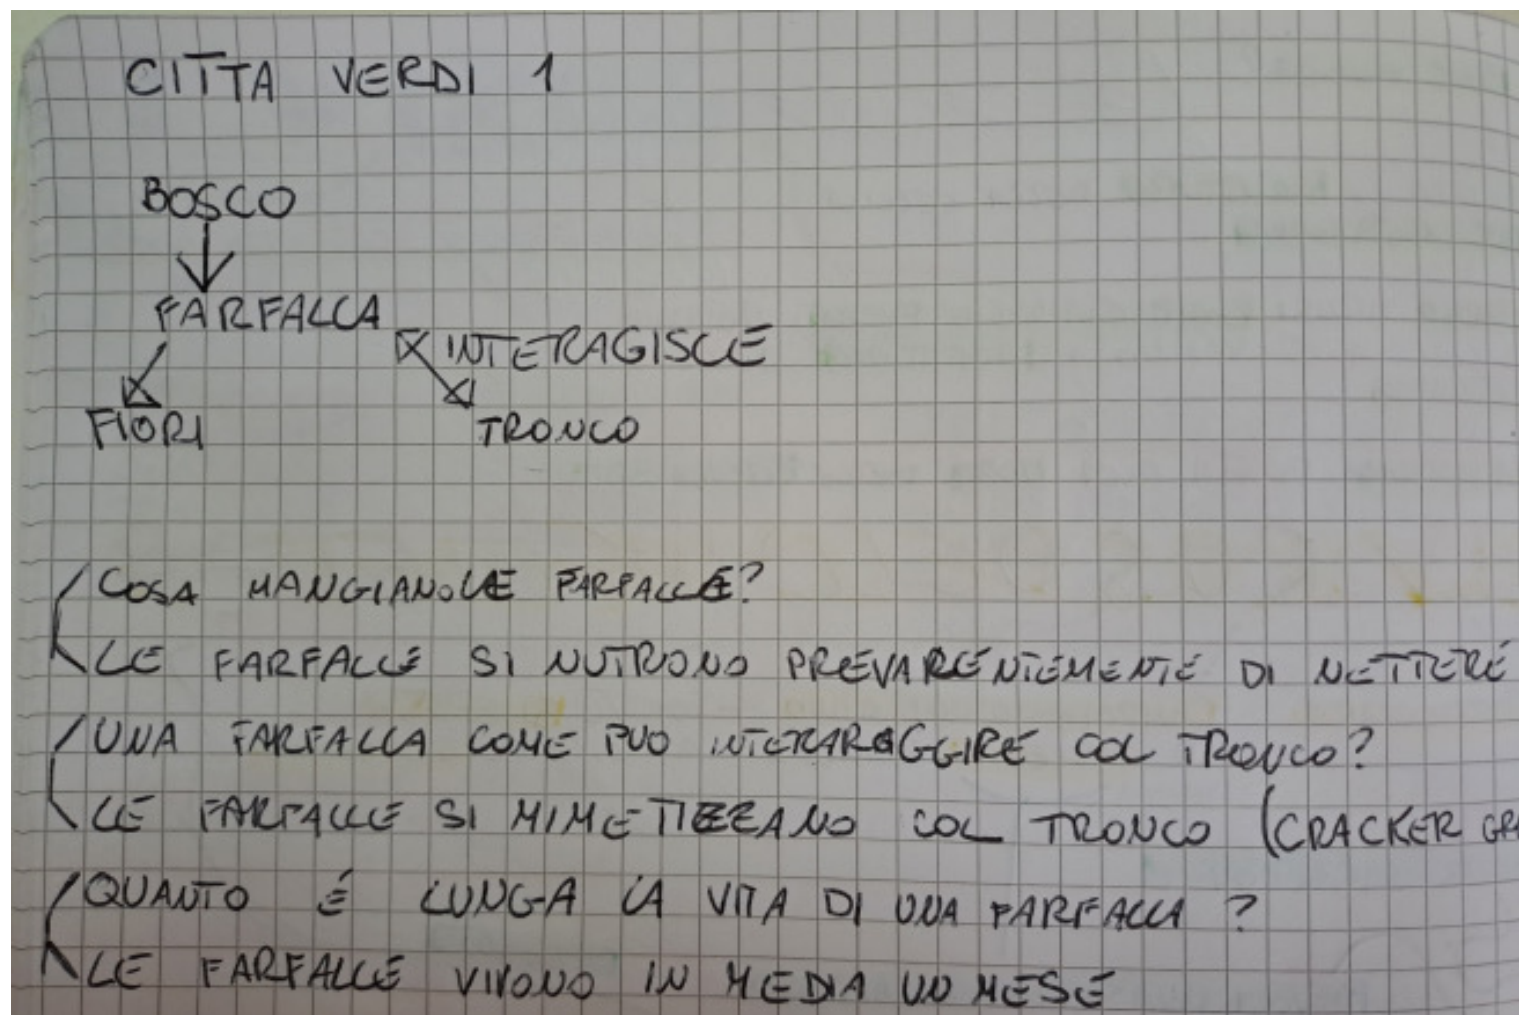 CITTA VERDI 1
BOSCO
FARFALLA
INTERAGISCE
FIORI
TRONCO
COSA MANGIANO LE FARFALLE?
LE FARFALLE SI NUTRONO PREVARLENTEMENTE DI NETTERE
UNA FARFALLA COME PUO INTERARAGGIRE COL TRONCO?
LE FARFALLE SI MIMETIZZANO COL TRONCO (CRACKER
QUANTO É LUNGA LA VITA DI UNA FARFALLA ?
LE FARFALLE VIVONO IN MEDIA UN MESE